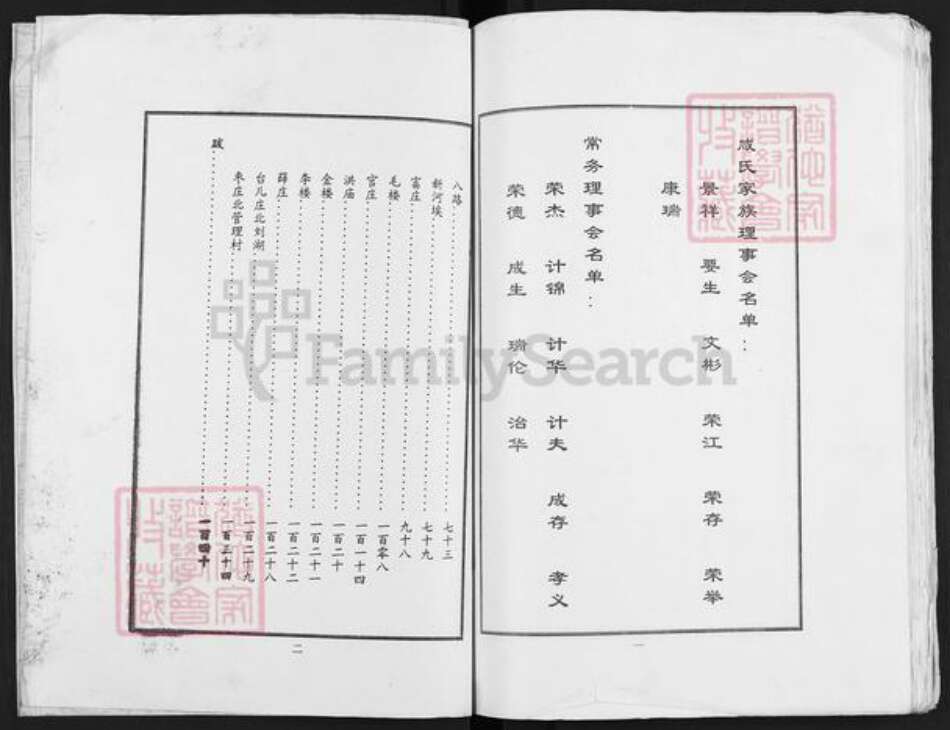 咸氏家族理事会名单：
景祥 要生 文彬 荣江 荣存 荣举
康瑞
常务理事会名单：
荣杰 计锦 计华 计夫 成存 孝义
荣德 成生 瑞伦 治华
一
八路……七十三
新河埃……七十九
富庄……九十八
毛楼……一百零八
官庄……一百一十四
洪庙……一百二十
金楼……一百二十一
李楼……一百二十二
薛庄……一百二十八
台儿庄北刘湖……一百二十九
枣庄北管理村……一百三十四
跋……一百四十
二
FamilySearch